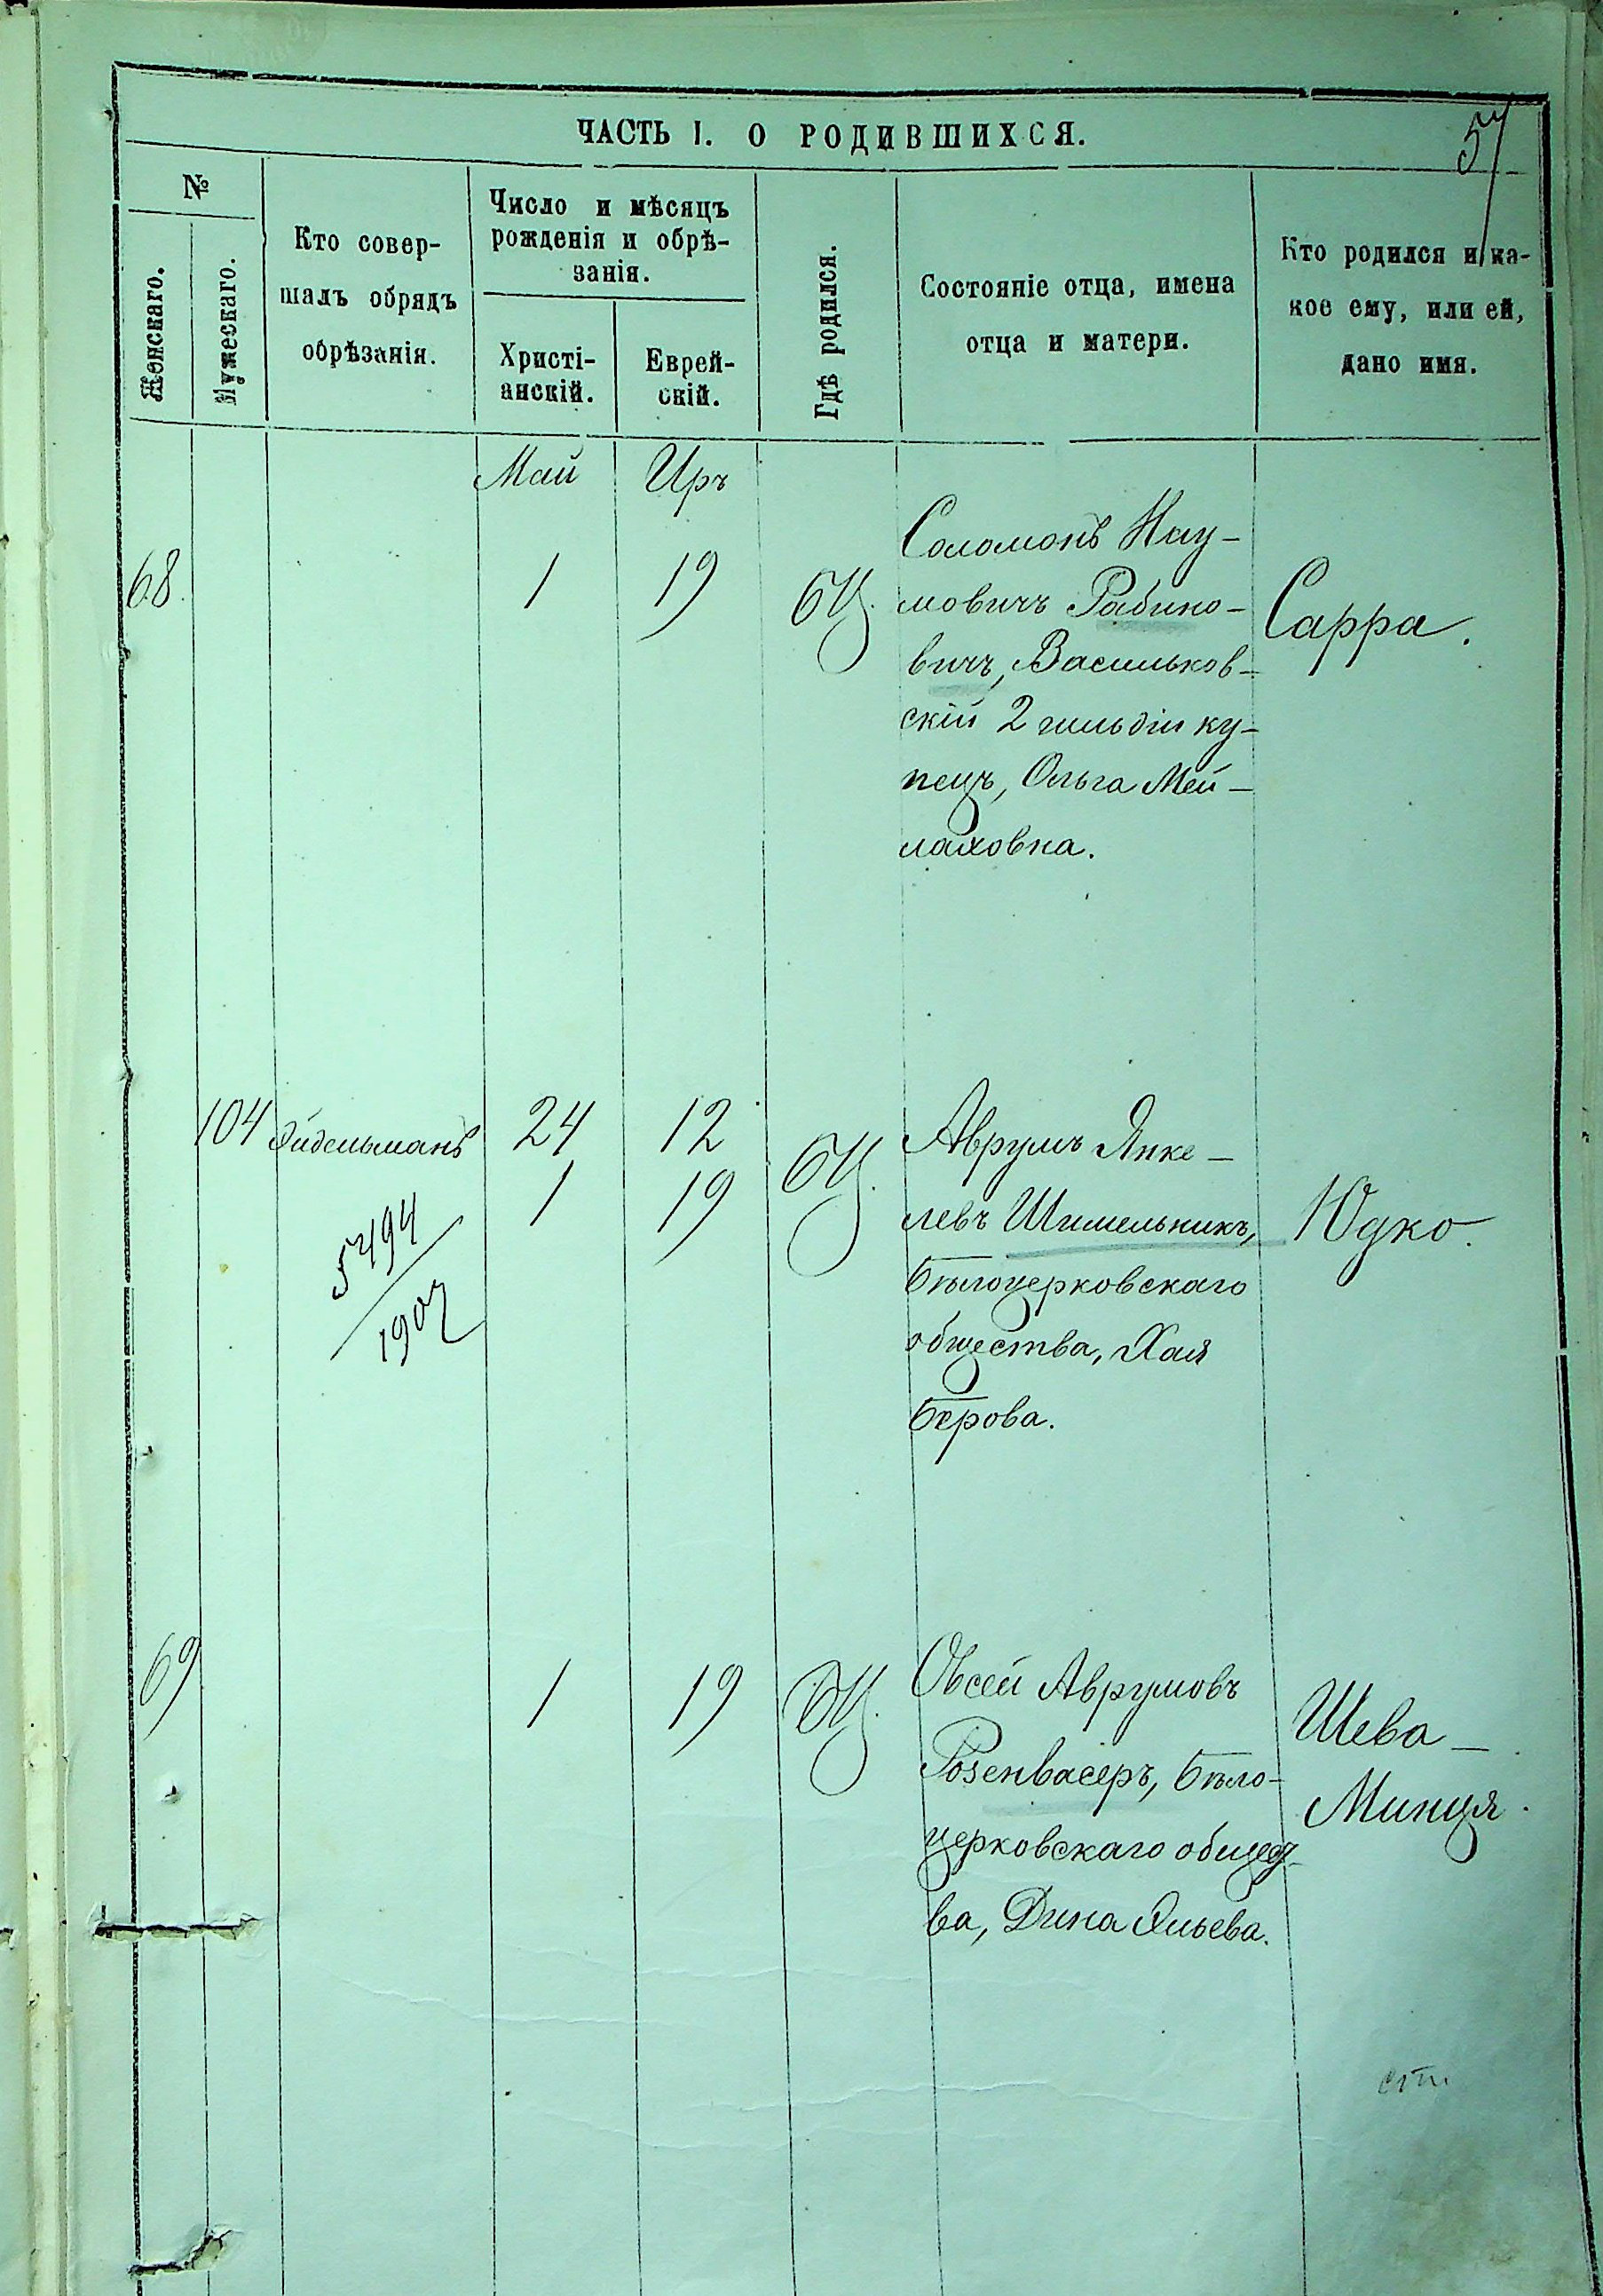 ЧАСТЬ I. О РОДИВШИХСЯ.
57
№
Женскаго.
Мужескаго.
Кто совер-
шалъ обрядъ
обрѣзанія.
Число и мѣсяцъ
рожденія и обрѣ-
занія.
Христі-
анскій.
Еврей-
скій.
Гдѣ родился.
Состояніе отца, имена
отца и матери.
Кто родился и ка-
кое ему, или ей,
дано имя.
Май
Иръ
68.
1
19
БЦ.
Соломонъ Нау-
мовичъ Рабино-
вичъ, Васильков-
скій 2 гильдіи ку-
пецъ, Ольга Мей-
лаховна.
Сарра.
104
Эйдельманъ
24
12
1
19
БЦ.
Аврумъ Янке-
левъ Шимельникъ,
Бѣлоцерковскаго
общества, Хая
Берова.
Юдко.
5494
1907
69
1
19
БЦ.
Овсей Аврумовъ
Розенвасеръ, Бѣло-
церковскаго общест-
ва, Дина Эльева.
Шева-
Минця.